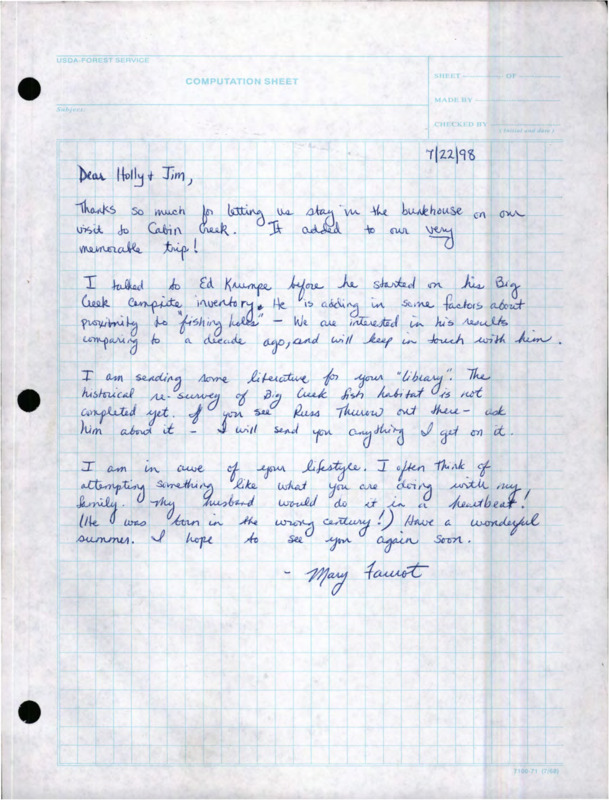 USDA-FOREST SERVICE
COMPUTATION SHEET
SHEET OF
MADE BY
Subject:
CHECKED BY
(Initial and date)
7/22/98
Dear Holly + Jim,
Thanks so much for letting us stay in the bunkhouse on our
visit to Cabin Creek. It added to our very
memorable trip!
I talked to Ed Krumpe before he started on his Big
Creek campsite inventory. He is adding in some factors about
proximity to "fishing holes" – We are interested in his results
comparing to a decade ago, and will keep in touch with him.
I am sending some literative for your "library". The
historical re-survey of Big Creek fish habitat is not
completed yet. If you see Russ Thurow out there – ask
him about it – I will send you anything I get on it.
I am in awe of your lifestyle. I often think of
attempting something like what you are doing with my
family. My husband would do it in a heartbeat!
(He was born in the wrong century!) Have a wonderful
summer. I hope to see you again soon.
– Mary Faurot
7100-71 (7/68)